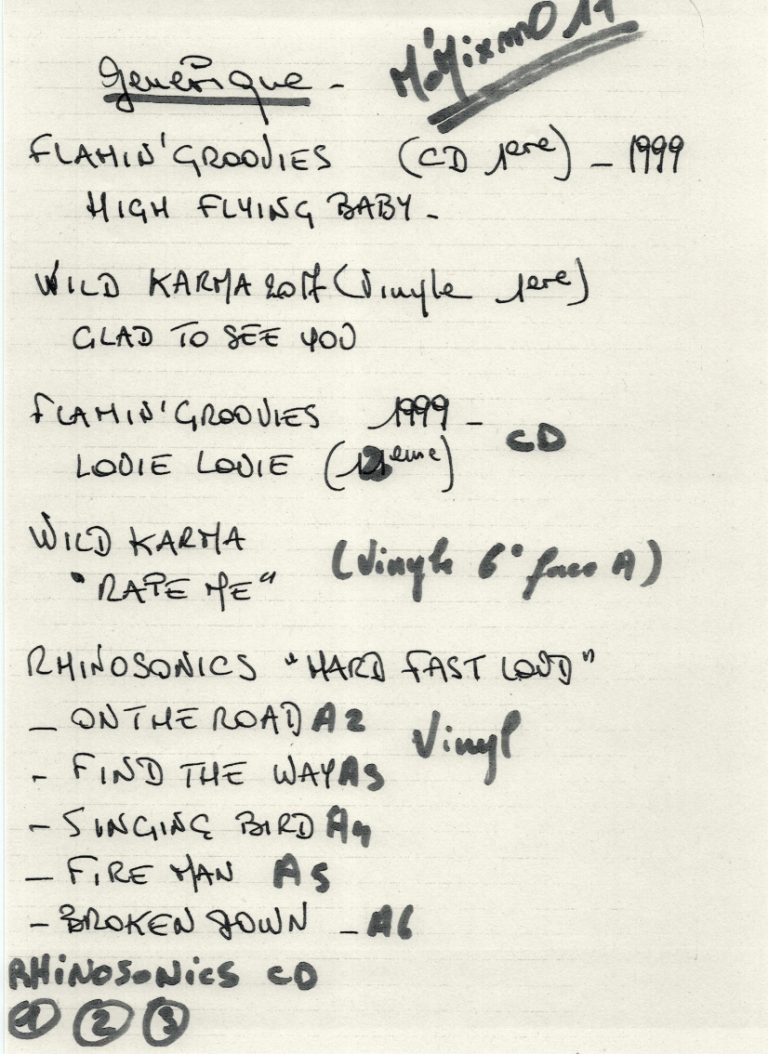 Generique -
FLAMIN' GROOVIES (CD 1ere) - 1999
HIGH FLYING BABY -
WILD KARMA 2017 (Vinyle 1ere)
GLAD TO SEE YOU
FLAMIN' GROOVIES 1999 - CD
LOUIE LOUIE (eme)
WILD KARMA
"RAPE ME" (Vinyle 6° face A)
RHINOSONICS "HARD FAST LOUD"
- ON THE ROAD A2 Vinyl
- FIND THE WAY
- SINGING BIRD A4
- FIRE MAN A5
- BROKEN DOWN - A6
RHINOSONICS CD
1 2 3